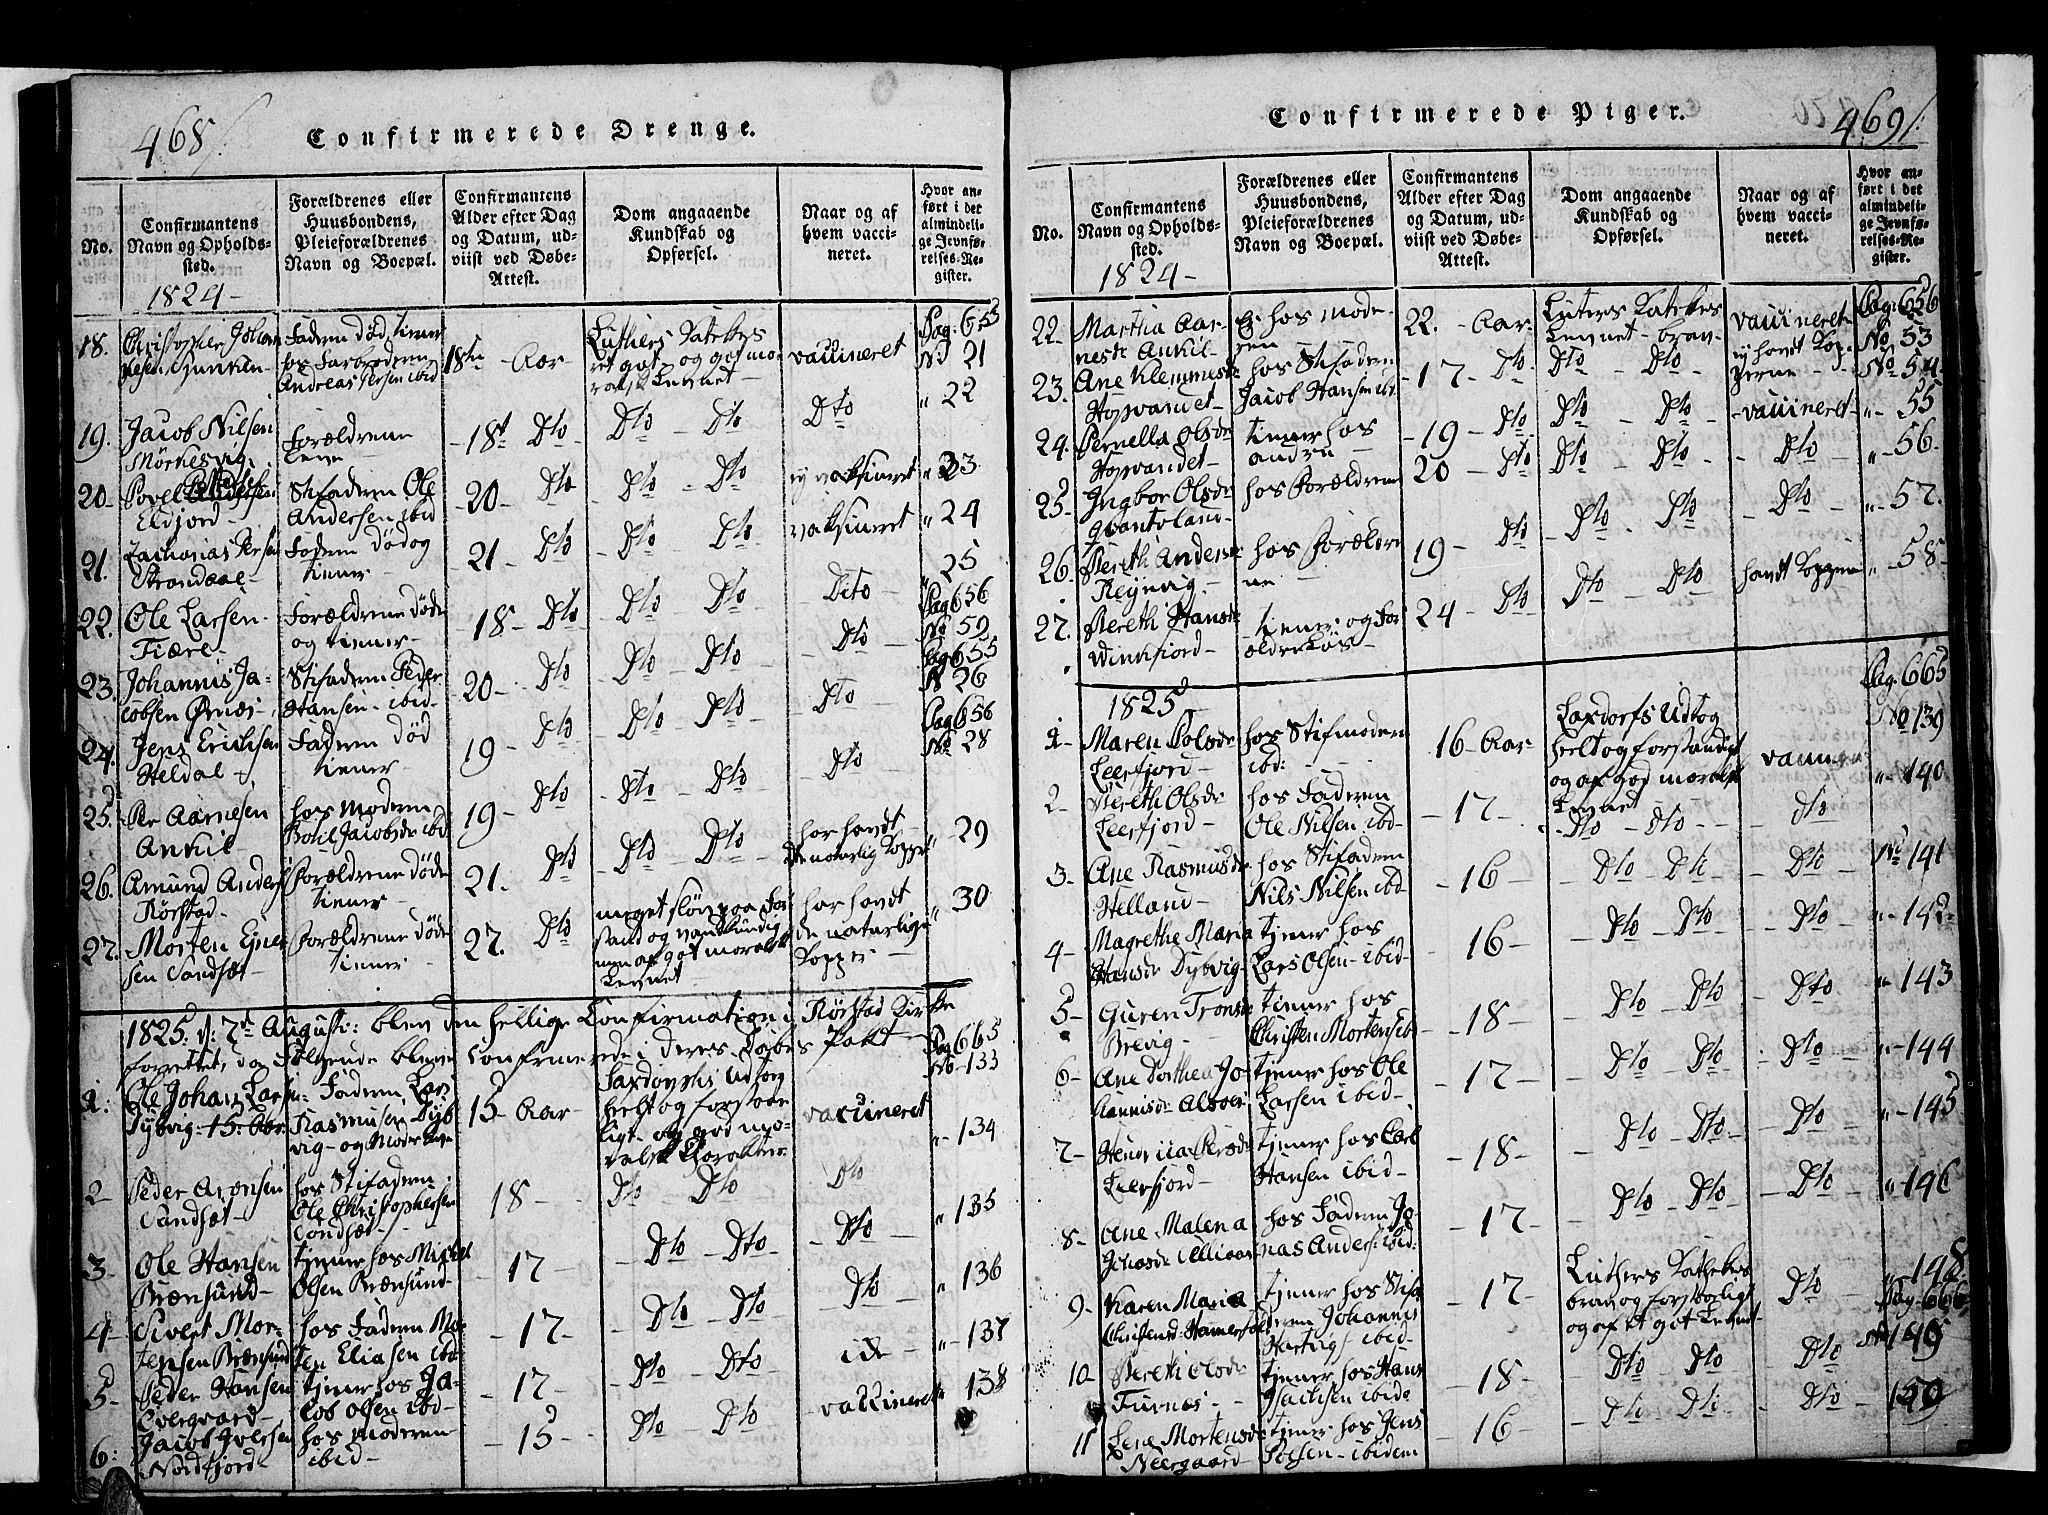 468/.
Confirmerede Drenge.
No.
Confirmantens Navn og Opholdssted.
Forældrenes eller Huusbondens, Pleieforældrenes Navn og Boepæl.
Confirmantens Alder efter Dag og Datum, udviist ved Døbe-Attest.
Dom angaaende Kundskab og Opførsel.
Naar og af hvem vaccineret.
Hvor anført i det almindelige Jevnførelses-Register.
1824-
18. Christopher Johannesen Faderen død, tiener hos Andreas Persen ibid 18ten Aar Luthers got og got moralsk vaccineret Pag. 655 No 21
19. Jacob Nilsen Mørkesvig Forældrene 18t Dto Dto Dto Dto " 22
20- Povel Eldjord- Stifaderen Ole Andersen ibid 20- Dto Dto - Dto ej vaksineret " 23
21. Zacharias Persen Strandaae- Faderen død og tiener- 21 - Dto Dto Dto vaksineret " 24
22. Ole Larsen Fiære- Forældrene døde og tiener- 18 - Dto Dto - Dto Dito 25 Pag 656 No 59
23. Johannis Jacobsen Ørnæs- Stifaderen Peder Hansen- ibid- 20- Dto Dto - Dto - Dto Pag 655 N 26
24. Jens Erichsen Heldal- Faderen død tiener- 19 - Dto Dto - Dto Dto Pag 656 No 28
25. Per Aarnesen Ankil- hos Moderen Bohil Jacobsdr ibid 19 - Dto Dto - Dto - Dto
26. Amund Anders: Rørstad- Forældrene døde tiener- 21. Dto Dto - Dto har havdt de naturlig Kopper " 29
27. Morten Ejnersen Sandsæt- Forældrene døde tiener- 27. Dto meget sløv paa Forstand og vankundig men af got moralsk har havdt de naturlige Kopper- " 30
1825. d: 7d Augusti: blev den hellige Confirmation i Rørstad Kirke
forrettet, da Følgende bleve Confirmerede i deres Døbes Pakt-
1. Ole Johan Larsen Dybvig- 15. Aar Faderen Lars Rasmusen Dybvig- og Moder 15 - Aar- Udtog heelt og forstaaeligt- og god moralsk Charakter vaccineret Pag 665 No 133
2- Peder Aronsen Sandsæt- hos Stifaderen Ole Christophersen Sandsæt- 18 - Dto - Dto Dto " 134
3- Ole Hansen Brænsund- tjener hos Michel Olsen Brænsund- - 17 - Dto - Dto - Dto - " 135
4- Sivert Mortensen Brænsund hos Faderen Morten Eliasen ibd - 17 - Dto - Dto Dto " 136
5- Peder Hansen Overgaard- tjener hos Jacob Olsen ibd- - 17 - Dto Dto " 137
6: Jacob Iversen Nordfjord- hos Moderen ibid- - 15 - Dto - Dto vaccineret 138
469/.
Confirmerede Piger.
No.
Confirmantens Navn og Opholdssted.
Forældrenes eller Huusbondens, Pleieforældrenes Navn og Boepæl.
Confirmantens Alder efter Dag og Datum, udviist ved Døbe-Attest.
Dom angaaende Kundskab og Opførsel.
Naar og af hvem vaccineret.
Hvor anført i det almindelige Jevnførelses-Register.
1824-
22. Martha Aarnesdr Ankil- hos Moderen 22. - Aar Luters vaccineret Pag: 656 No 53
23. Ane Klemmesdr Hopvandet- hos Stifaderen Jacob Hansen ibd - 17 - Dto Dto - Dto - ej havdt Kopperne - No 54
24. Pernella Olsdr Hopvandet- tiener hos andre - 19 - Dto Dto - Dto - vaccineret- " - 55
25- Ingbor Olsdr hos Forældrene 20 - Dto Dto - Dto - - Dto - " - 56.
26. Bereth Andersdr Røsvig- hos Forældrene 19 - Dto - Dto - Dto - Dto - " - 57.
27. Bereth Hansdr Winkfjord- - tiener og Forældreløs- 24 - Dto Dto - Dto havdt Koppene " - 58-
1825
1- Maren Polsdr Leerfjord- hos Stifmoderen ibd: 16 - Aar Udtog heelt og forstandigt og af god moralsk Pag. 665 No 139
2- Bereth Olsdr Leerfjord- hos Faderen Ole Nilsen ibd- - 17 - - Dto - Dto - - Dto " - 140
3- Ane Rasmusdr Helland- hos Stifaderen Nils Nilsen ibd- - 16 - - Dto - Dto - - Dto No 141
4- Magrethe Maria Hansdr Dybvig- tjener hos Lars Olsen- ibid- - 16 - - Dto - Dto - - Dto - " - 142-
5- Guren Tronsdr Brevig- tiener hos Christen Mortens ibd - 18 - - Dto - Dto - - Dto - " - 143
6- Ane Dorthea Johannisdr tjener hos Ole Larsen ibid- - 17 - - Dto - Dto - - Dto - " - 144
7- Leerfjord- tjener hos Carl Hansen ibid- - 18 - - Dto - Dto - - Dto - " - 145
8- Ane Malena hos Faderen Jonas Anders: ibid: - 17 - - Dto - Dto - - Dto - " - 146
9- Karen Maria Christensd: tjener hos Stifaderen Johannis Hartvigs ibid- - 17 - Luthers brav og forstaaeligt og af et got - Dto " - 148 Pag- 666
10- Bereth Olsdr Furnes- tjener hos Hans Isachsen ibid: - 18 - - Dto - Dto - Dto No 149
11 Lene Mortensdr Neergaard- tjener hos Jens - ibidem - 16 - - Dto - Dto - - Dto - 150